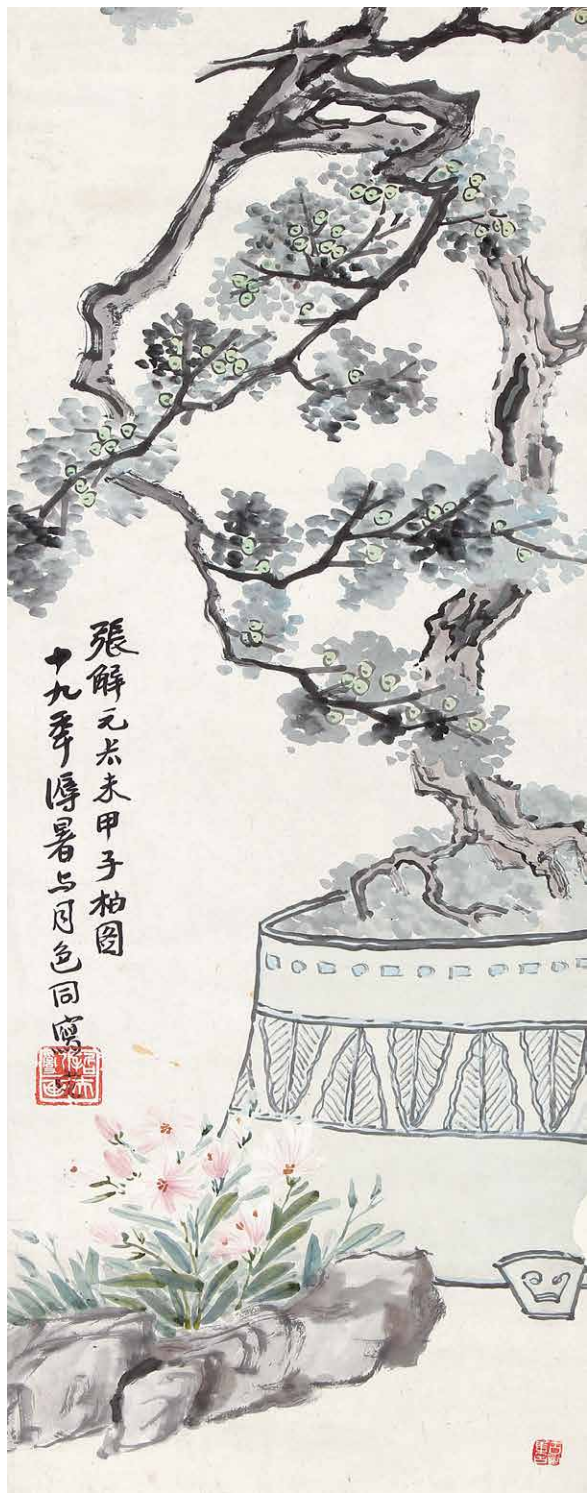 張解元未甲子柏圖
十九年溽暑与月色同寫